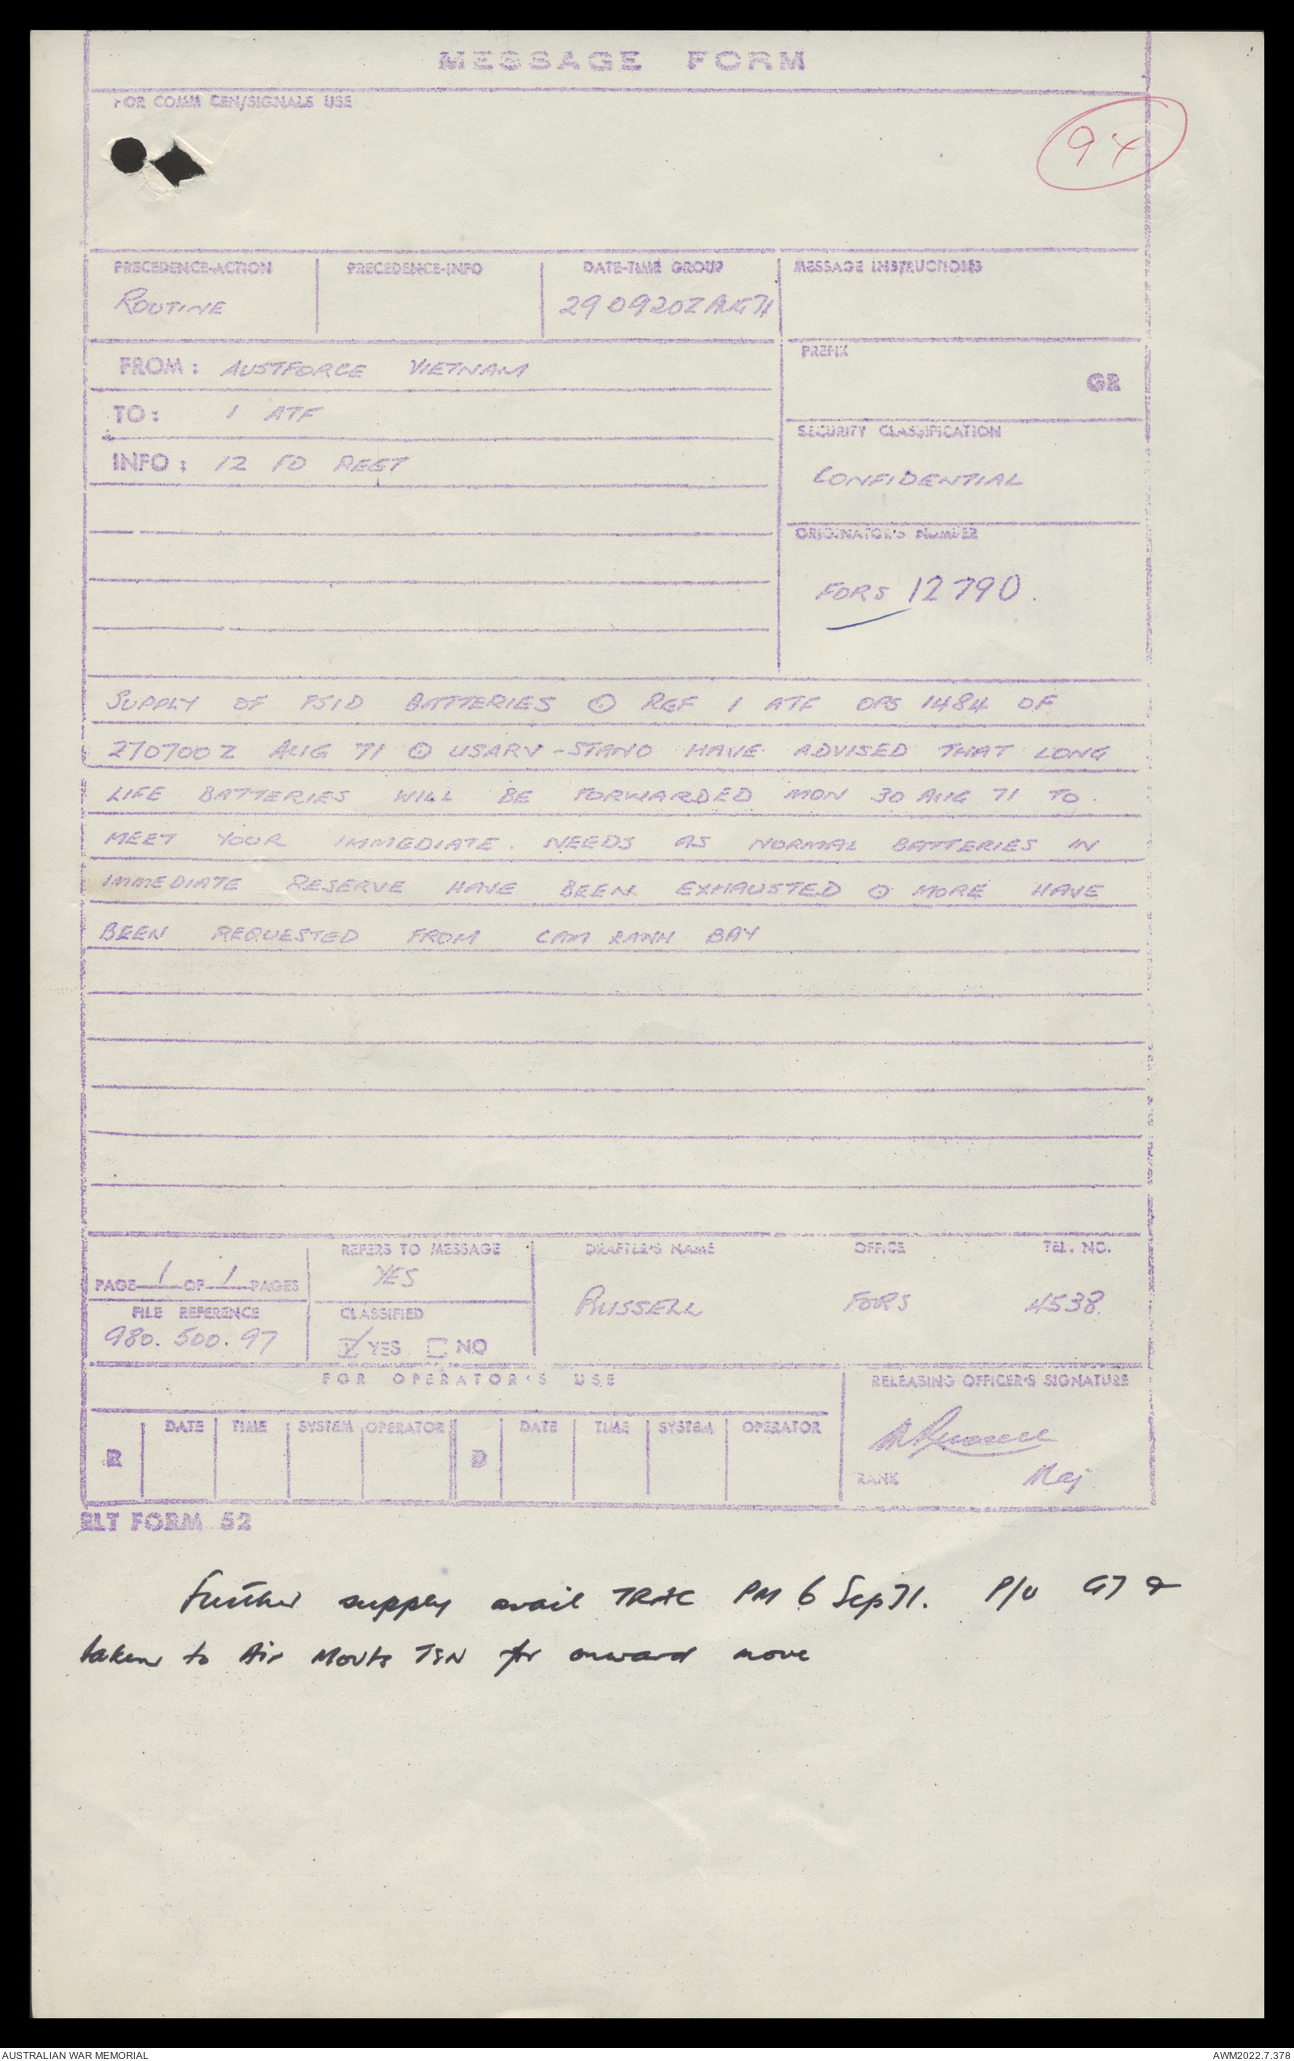 MESSAGE FORM
FOR COMM CEN/SIGNALS USE
94
PRECEDENCE-ACTION PRECEDENCE-INFO DATE-TIME GROUP MESSAGE INSTRUCTIONS
ROUTINE 290920Z AUG 71
PREFIX
FROM: AUSTFORCE VIETNAM
GR
TO: 1 ATF
SECURITY CLASSIFICATION
INFO: 12 FD REGT
CONFIDENTIAL
ORIGINATOR'S NUMBER
FORS 12790.
SUPPLY OF PSID BATTERIES ⊙ REF 1 ATF OPS 1484 OF
270700Z AUG 71 ⊙ USARV-STANO HAVE ADVISED THAT LONG
LIFE BATTERIES WILL BE FORWARDED MON 30 AUG 71 TO
MEET YOUR IMMEDIATE NEEDS AS NORMAL BATTERIES IN
IMMEDIATE RESERVE HAVE BEEN EXHAUSTED ⊙ MORE HAVE
BEEN REQUESTED FROM CAM RANH BAY
REFERS TO MESSAGE DRAFTER'S NAME OFFICE TEL. NO.
YES
PAGE 1 OF 1 PAGES
RUSSELL FORS 4538
FILE REFERENCE CLASSIFIED
980.500.97 ☑ YES ☐ NO
FOR OPERATOR'S USE RELEASING OFFICER'S SIGNATURE
DATE TIME SYSTEM OPERATOR DATE TIME SYSTEM OPERATOR
R D
RANK Maj
RLT FORM 52
Further supply avail TRAC PM 6 Sep 71. P/U G7 &
taken to Air Movts TSN for onward move
AUSTRALIAN WAR MEMORIAL AWM2022.7.378